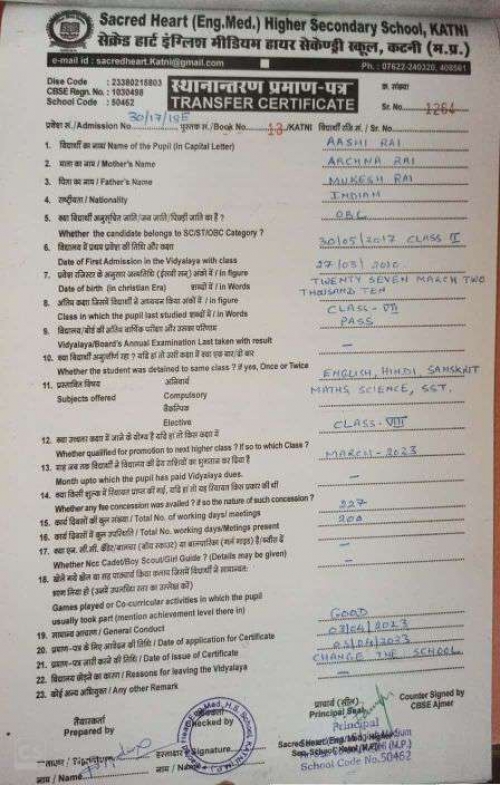 Sacred Heart (Eng.Med.) Higher Secondary School, KATNI
सेक्रेड हार्ट इंग्लिश मीडियम हायर सेकेण्ड्री स्कूल, कटनी (म.प्र.)
e-mail id : sacredheart.Katni@gmail.com Ph. : 07622-240320, 408561
Dise Code : 23380215803
CBSE Regn. No. : 1030498
School Code : 50462
स्थानान्तरण प्रमाण-पत्र
TRANSFER CERTIFICATE
क्र. संख्या
Sr. No. 1264
प्रवेश सं./Admission No. 30/17/18E पुस्तक सं./Book No. 13/KATNI विद्यार्थी रजि सं. / Sr. No.
1. विद्यार्थी का नाम/ Name of the Pupil (in Capital Letter) AASHI RAI
2. माता का नाम / Mother's Name ARCHNA RAI
3. पिता का नाम / Father's Name MUKESH RAI
4. राष्ट्रीयता / Nationality INDIAN
5. क्या विद्यार्थी अनुसूचित जाति/जन जाति/पिछड़ी जाति का है ? OBC
Whether the candidate belongs to SC/ST/OBC Category ?
6. विद्यालय में प्रथम प्रवेश की तिथि और कक्षा 30/05/2017 CLASS II
Date of First Admission in the Vidyalaya with class
7. प्रवेश रजिस्टर के अनुसार जन्मतिथि (ईस्वी सन्) अंकों में / in figure 27/03/2010
Date of birth (in christian Era) शब्दों में / in Words TWENTY SEVEN MARCH TWO THOUSAND TEN
8. अंतिम कक्षा जिसमें विद्यार्थी ने अध्ययन किया अंकों में / in figure CLASS - VII
Class in which the pupil last studied शब्दों में / in Words
9. विद्यालय/बोर्ड की अंतिम वार्षिक परीक्षा और उसका परिणाम PASS
Vidyalaya/Board's Annual Examination Last taken with result
10. क्या विद्यार्थी अनुत्तीर्ण रहा ? यदि हां तो उसी कक्षा में क्या एक बार/दो बार –
Whether the student was detained to same class ? if yes, Once or Twice
11. प्रस्तावित विषय अनिवार्य ENGLISH, HINDI, SANSKRIT
Subjects offered Compulsory MATHS SCIENCE, SST.
वैकल्पिक
Elective
12. क्या उच्चतर कक्षा में जाने के योग्य है यदि हां तो किस कक्षा में CLASS - VIII
Whether qualified for promotion to next higher class ? If so to which Class ?
13. माह जब तक विद्यार्थी ने विद्यालय की देय राशियों का भुगतान कर दिया है MARCH - 2023
Month upto which the pupil has paid Vidyalaya dues.
14. क्या किसी शुल्क में रियायत प्राप्त की गई, यदि हां तो वह रियायत किस प्रकार की थी –
Whether any fee concession was availed ? if so the nature of such concession ?
15. कार्य दिवसों की कुल संख्या / Total No. of working days/ meetings 227
16. कार्य दिवसों में कुल उपस्थिति / Total No. working days/Metings present 200
17. –
Whether Ncc Cadet/Boy Scout/Girl Guide ? (Details may be given)
18. –
Games played or Co-curricular activities in which the pupil
usually took part (mention achievement level there in)
19. सामान्य आचरण / General Conduct GOOD
20. प्रमाण-पत्र के लिए आवेदन की तिथि / Date of application for Certificate 03/04/2023
21. प्रमाण-पत्र जारी करने की तिथि / Date of issue of Certificate 05/04/2023
22. विद्यालय छोड़ने का कारण / Reasons for leaving the Vidyalaya CHANGE THE SCHOOL
23. कोई अन्य अभियुक्त / Any other Remark –
तैयारकर्ता
Prepared by
Checked by
प्राचार्य (सील)
Principal Seal
Counter Signed by
CBSE Ajmer
Principal
School Code No.50462
हस्ताक्षर / Signature
हस्ताक्षर / Signature
नाम / Name
नाम / Name
CS